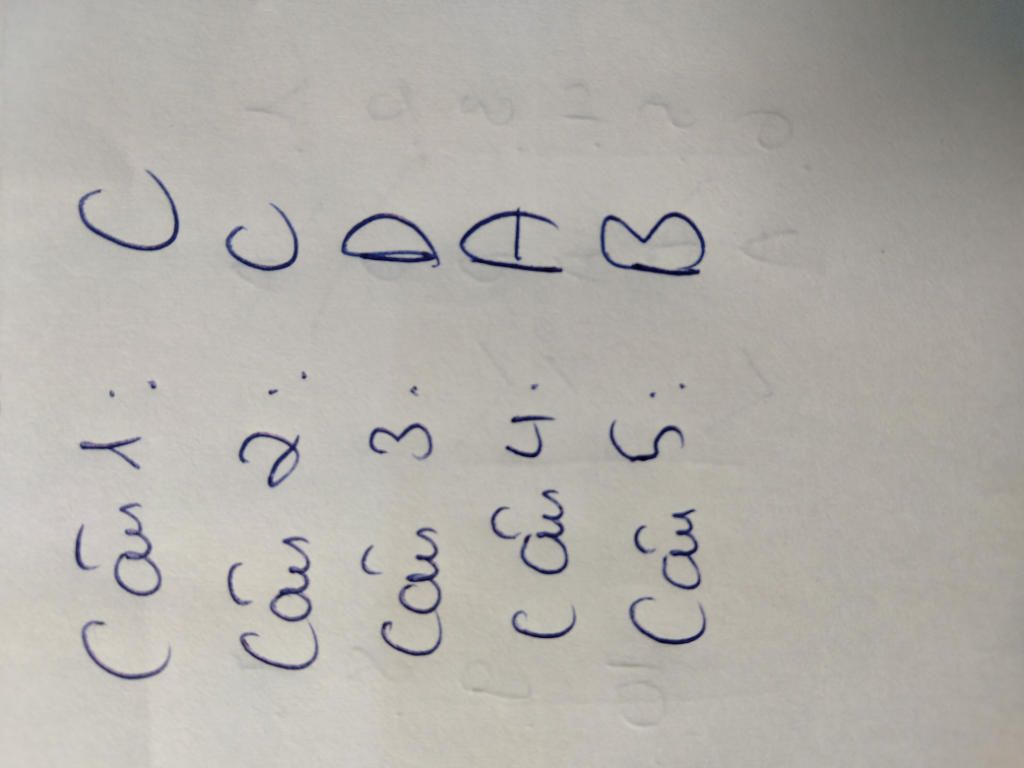 Câu 1: C
Câu 2: C
Câu 3. D
Câu 4. A
Câu 5: B